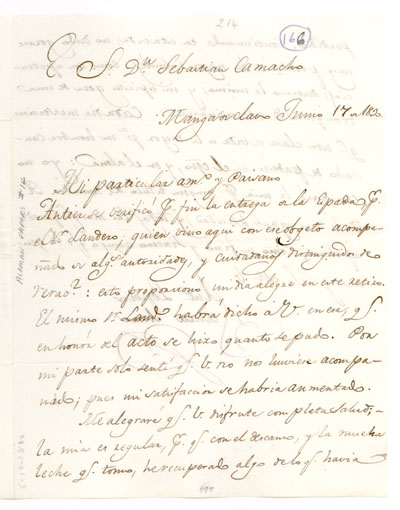 214
166
E. S. Dn Sebastian Camacho
Manga de Clavo Junio 17 de 183
Mi particular amo. y Paisano
Antier se verificó pr. fin la entrega de la Espada pr.
el Sr. Landero, quien vino aqui con ese objeto acompa-
ñado de algs. autoridades, y ciudadanos distinguidos de
Veracz.: esto proporcionó un dia alegre en este retiro.
El mismo Sr. Land.o habrá dicho á V. en esa, qe.
en honor del acto se hizo quanto se pudo. Por
mi parte solo sentí qe. V. no nos huviese acompa-
ñado; pues mi satisfaccion se habria aumentado.
Me alegraré qe. V. disfrute completa salud;
la mia es regular, pr. qe. con el descanso, y la mucha
leche qe. tomo, he recuperado algo de lo qe. havia
499
ALAMAN PAPERS #14